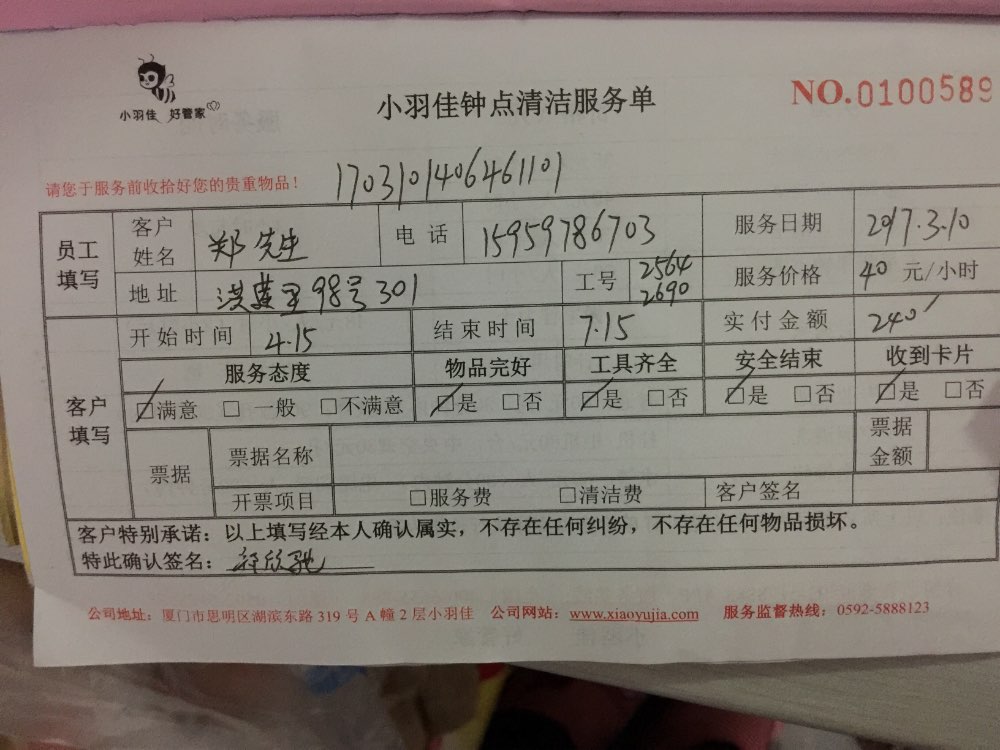 小羽佳 好管家
小羽佳钟点清洁服务单
NO.0100589
请您于服务前收拾好您的贵重物品！ 1703101406461101
员工填写 客户姓名 郑先生 电话 15959786703 服务日期 2017.3.10
地址 洪莲里98号301 工号 2564 2690 服务价格 40 元/小时
客户填写 开始时间 4.15 结束时间 7.15 实付金额 240
服务态度 物品完好 工具齐全 安全结束 收到卡片
☑满意 □一般 □不满意 ☑是 □否 ☑是 □否 ☑是 □否 ☑是 □否
票据 票据名称 票据金额
开票项目 □服务费 □清洁费 客户签名
客户特别承诺：以上填写经本人确认属实，不存在任何纠纷，不存在任何物品损坏。
特此确认签名：
公司地址：厦门市思明区湖滨东路 319 号 A 幢 2 层小羽佳 公司网站：www.xiaoyujia.com 服务监督热线：0592-5888123